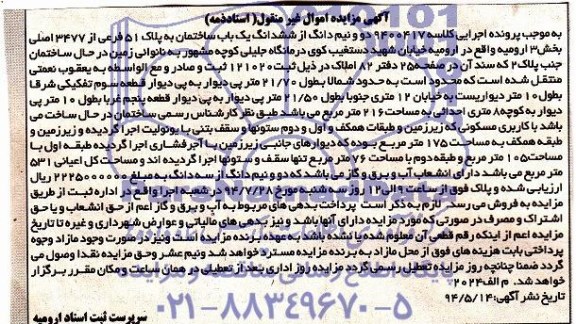 آگهی مزایده اموال غیر منقول( اسناد ذمه)
به موجب پرونده اجرایی کلاسه ۹۴۰۰۴۱۷ دو و نیم دانگ از ششدانگ یک باب ساختمان به پلاک ۵۱ فرعی از ۳۴۷۷ اصلی
بخش ۳ ارومیه واقع در ارومیه خیابان شهید دستغیب کوی درمانگاه جلیلی کوچه مشهور به نانوائی زمین در حال ساختمان
جنب پلاک ۲ که سند آن در صفحه ۲۵ دفتر ۸۲ املاک در ذیل ثبت ۱۲۱۰۲۰ ثبت و صادر و مع الواسطه به یعقوب نعمتی
منتقل شده است که محدود است به حدود شمالا بطول ۲۱/۷۰ متر پی دیوار به پی دیوار قطعه سوم تفکیکی شرقا
بطول ۱۰ متر دیواریست به خیابان ۱۲ متری جنوبا بطول ۲۱/۵۰ متر پی دیوار به پی دیوار قطعه پنجم غربا بطول ۱۰ متر پی
دیوار به کوچه ۸ متری احداثی به مساحت ۲۱۶ متر مربع می باشد طبق نظر کارشناس رسمی ساختمان در حال ساخت می
باشد با کاربری مسکونی که زیرزمین و طبقات همکف و اول و دوم ستونها و سقف بتنی با یونولیت اجرا گردیده و زیرزمین و
طبقه همکف به مساحت ۱۷۵ متر مربع بوده که دیوارهای جانبی زیرزمین با آجر فشاری اجرا گردیده طبقه اول با
مساحت ۱۰۵ متر مربع و طبقه دوم با مساحت ۷۶ متر مربع تنها سقف و ستونها اجرا گردیده اند و مساحت کل اعیانی ۵۳۱
متر مربع می باشد دارای انشعاب آب و برق و گاز می باشد که دو و نیم دانگ از سه دانگ به مبلغ ۲۲۲۵۰۰۰۰۰۰ ریال
ارزیابی شده و پلاک فوق از ساعت ۹ الی ۱۲ روز سه شنبه مورخ ۹۴/۷/۲۸ در شعبه اجرا واقع در اداره ثبت از طریق
مزایده به فروش می رسد. لازم به ذکر است پرداخت بدهی های مربوط به آب و برق و گاز اعم از حق انشعاب و یا حق
اشتراک و مصرف در صورتی که مورد مزایده دارای آنها باشد و نیز بدهی های مالیاتی و عوارض شهرداری و غیره تا تاریخ
مزایده اعم از اینکه رقم قطعی آن معلوم شده یا نشده باشد به عهده برنده مزایده است و نیز در صورت وجود مازاد وجوه
پرداختی بابت هزینه های فوق از محل مازاد به برنده مزایده مسترد خواهد شد و نیم عشر و حق مزایده نقدا وصول می
گردد ضمنا چنانچه روز مزایده تعطیل رسمی گردد مزایده روز اداری بعد از تعطیلی در همان ساعت و مکان مقرر برگزار
خواهد شد. م الف ۲۰۲۴
تاریخ نشر آگهی: ۹۴/۵/۱۴
سرپرست ثبت اسناد ارومیه
۰۲۱-۸۸۳۴۹۶۷۰-۵